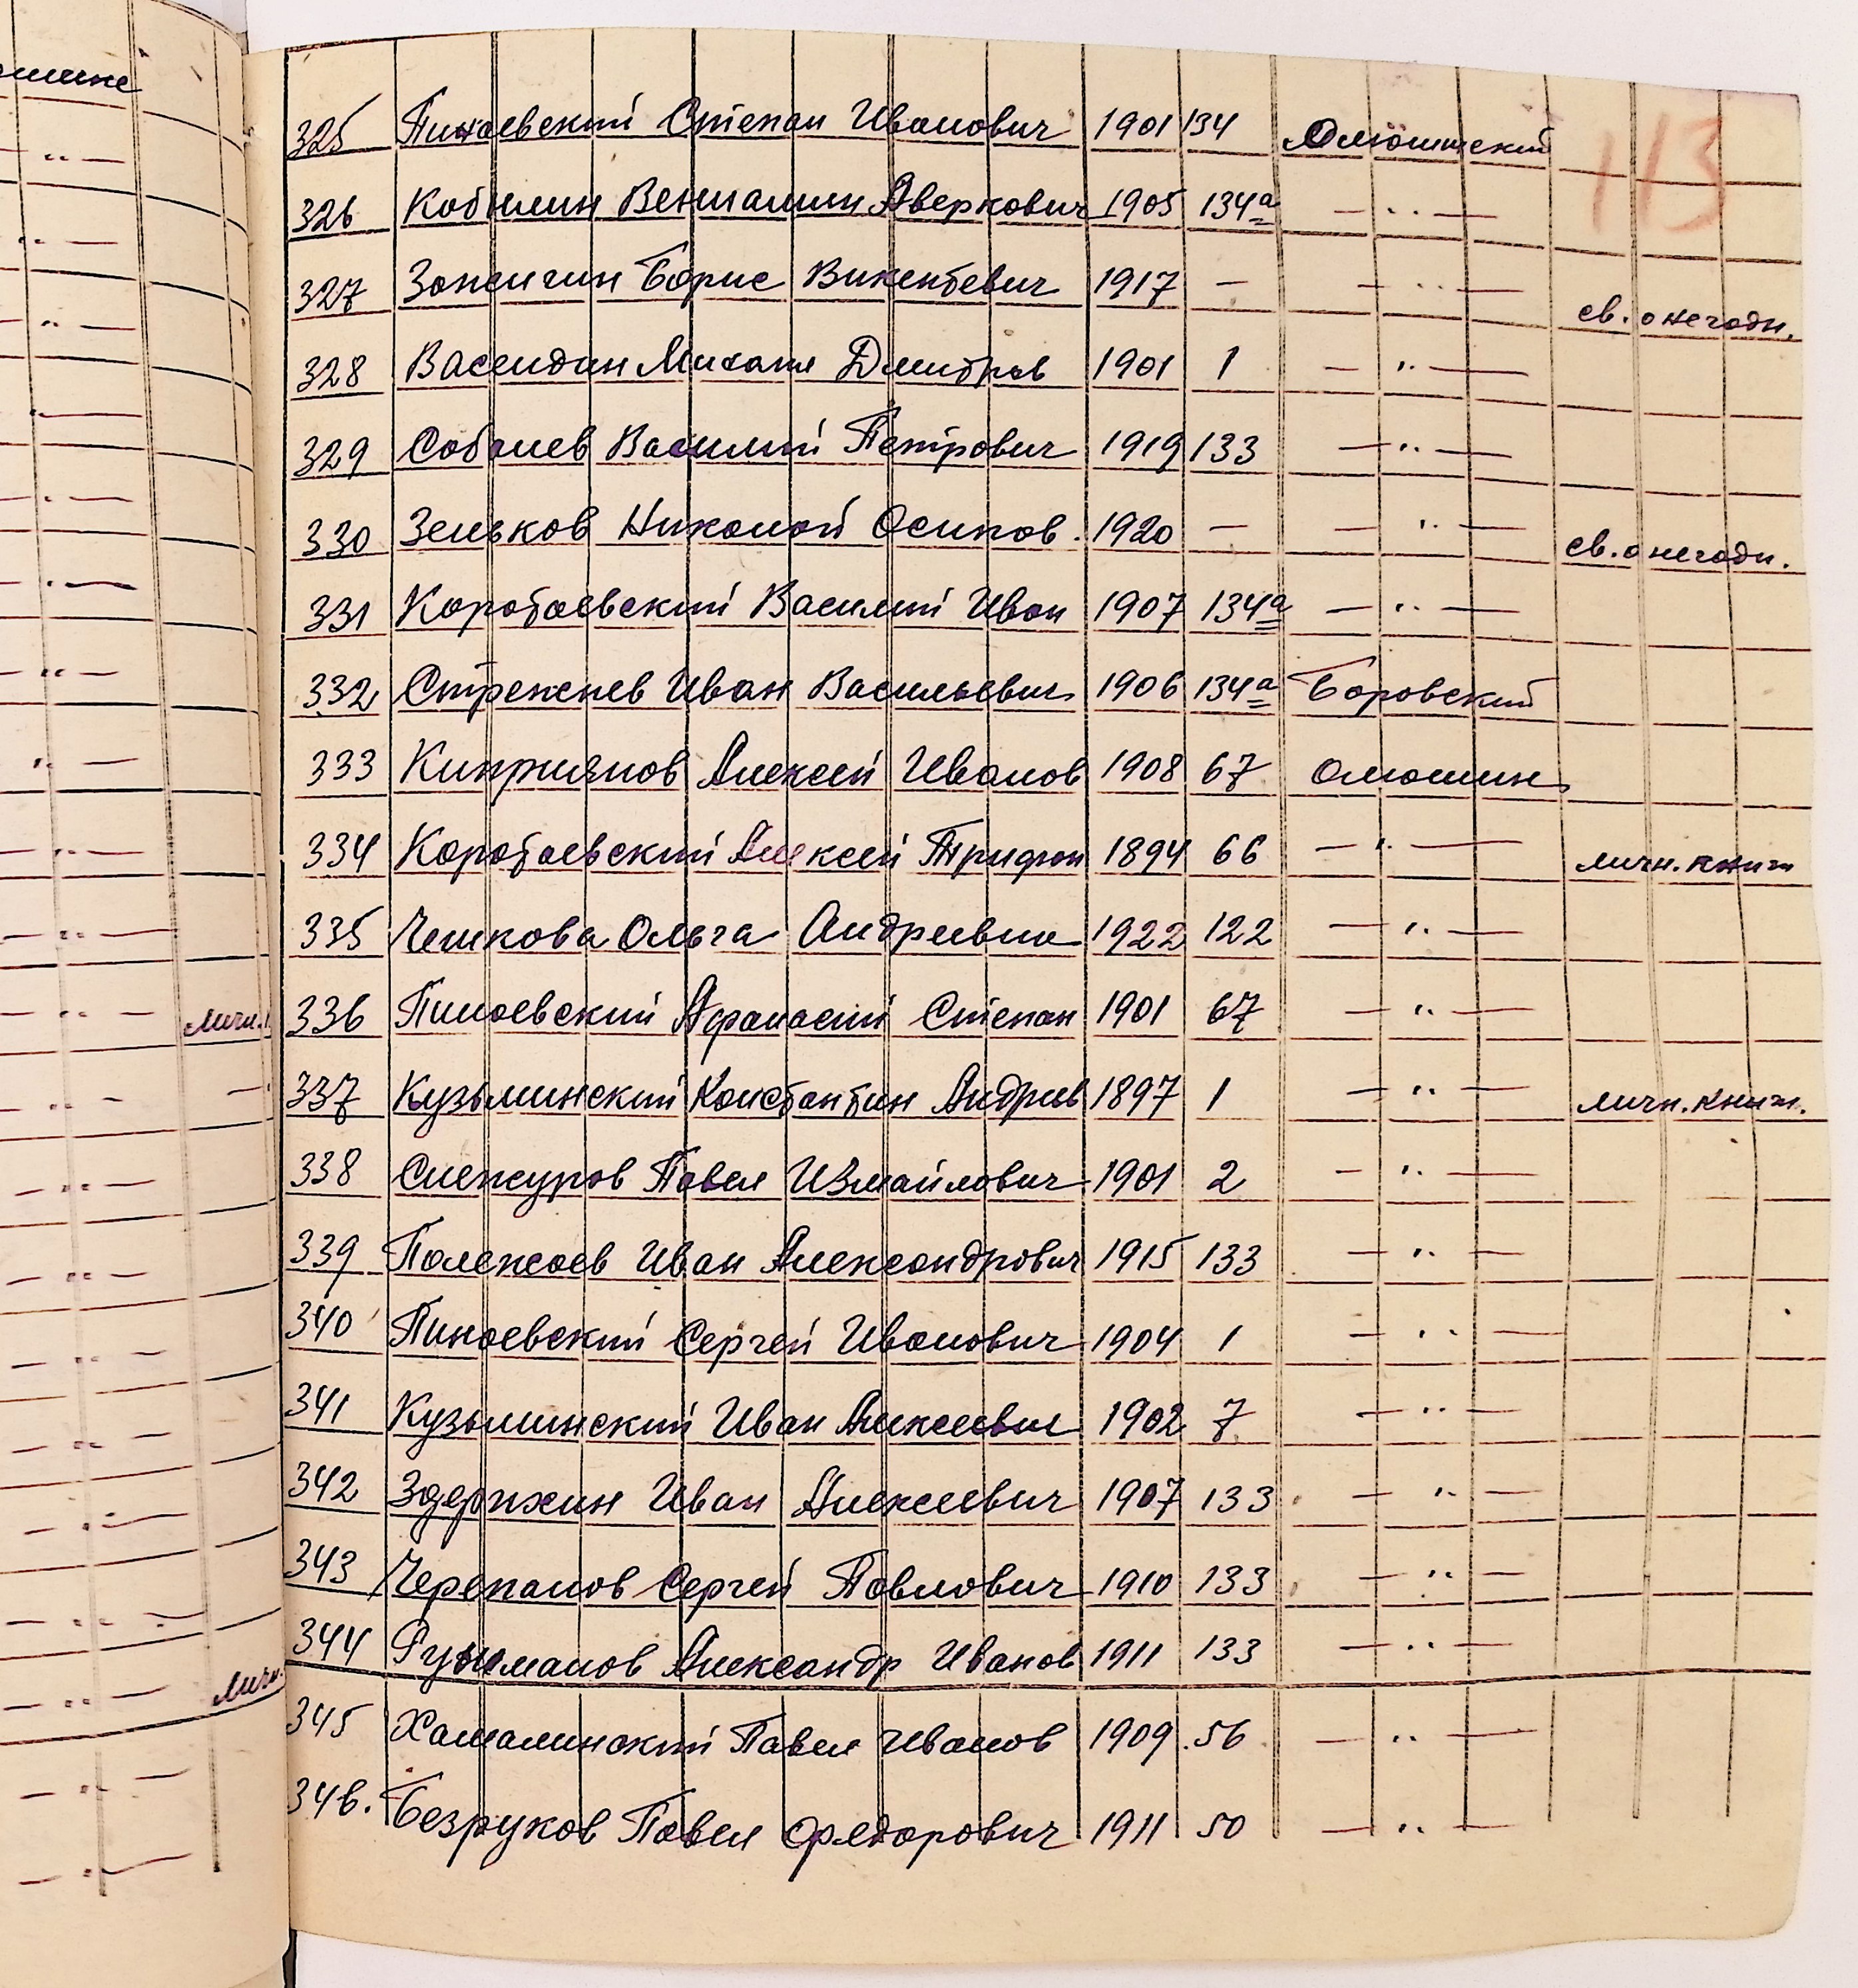 ошине
113
325 Пинаевский Степан Иванович 1901 134 Олюшинский
326 Кобылин Вениамин Аверкович 1905 134а — " —
327 Зажигин Борис Викентьевич 1917 — — " — св. о негодн.
328 Васендин Михаил Дмитрив 1901 1 — " —
329 Соболев Василий Петрович 1919 133 — " —
330 Зеньков Николай Осипов. 1920 — — " — св. о негодн.
331 Коробаевский Василий Иван 1907 134а — " —
332 Стрежнев Иван Васильевич 1906 134а Боровский
333 Киприянов Алексей Иванов 1908 67 Олюшин
334 Коробаевский Алексей Трифон 1894 66 — " — личн. книж
335 Чешкова Ольга Андреевна 1922 122 — " —
336 Пинаевский Афанасий Степан 1901 67 — " —
337 Кузьминский Константин Андреев 1897 1 — " — личн. книж.
338 Снежуров Павел Измайлович 1901 2 — " —
339 Полежаев Иван Александрович 1915 133 — " —
340 Пинаевский Сергей Иванович 1904 1 — " —
341 Кузьминский Иван Алексеевич 1902 7 — " —
342 Здержкин Иван Алексеевич 1907 133 — " —
343 Черепанов Сергей Павлович 1910 133 — " —
344 Александр Иванов 1911 133 — " —
345 Хамалинский Павел Иванов 1909 56 — " —
346. Безруков Павел Фядорович 1911 50 — " —
личн.
личн.